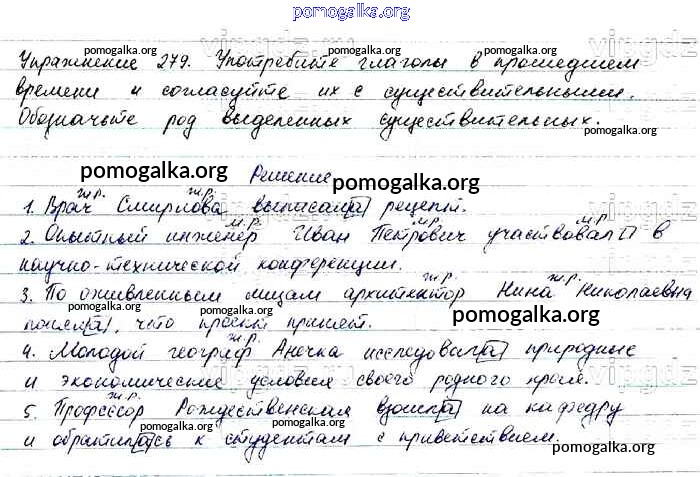 pomogalka.org
Упражнение 279. Употребите глаголы в прошедшем
времени и согласуйте их с существительными.
Обозначьте род выделенных существительных.
Решение
ж.р. ж.р.
1. Врач Смирнова выписал[а] рецепт.
м.р. м.р. м.р.
2. Опытный инженер Иван Петрович участвовал□ в
научно-технической конференции.
ж.р. ж.р.
3. По оживленным лицам архитектор Нина Николаевна
понял[а], что проект принят.
ж.р.
4. Молодой географ Анечка исследовал[а] природные
и экономические условия своего родного края.
ж.р.
5. Профессор Рождественская взошл[а] на кафедру
и обратил[а]сь к студентам с приветствием.
pomogalka.org
pomogalka.org
pomogalka.org
pomogalka.org
pomogalka.org
pomogalka.org
pomogalka.org
pomogalka.org
pomogalka.org
pomogalka.org
pomogalka.org
pomogalka.org